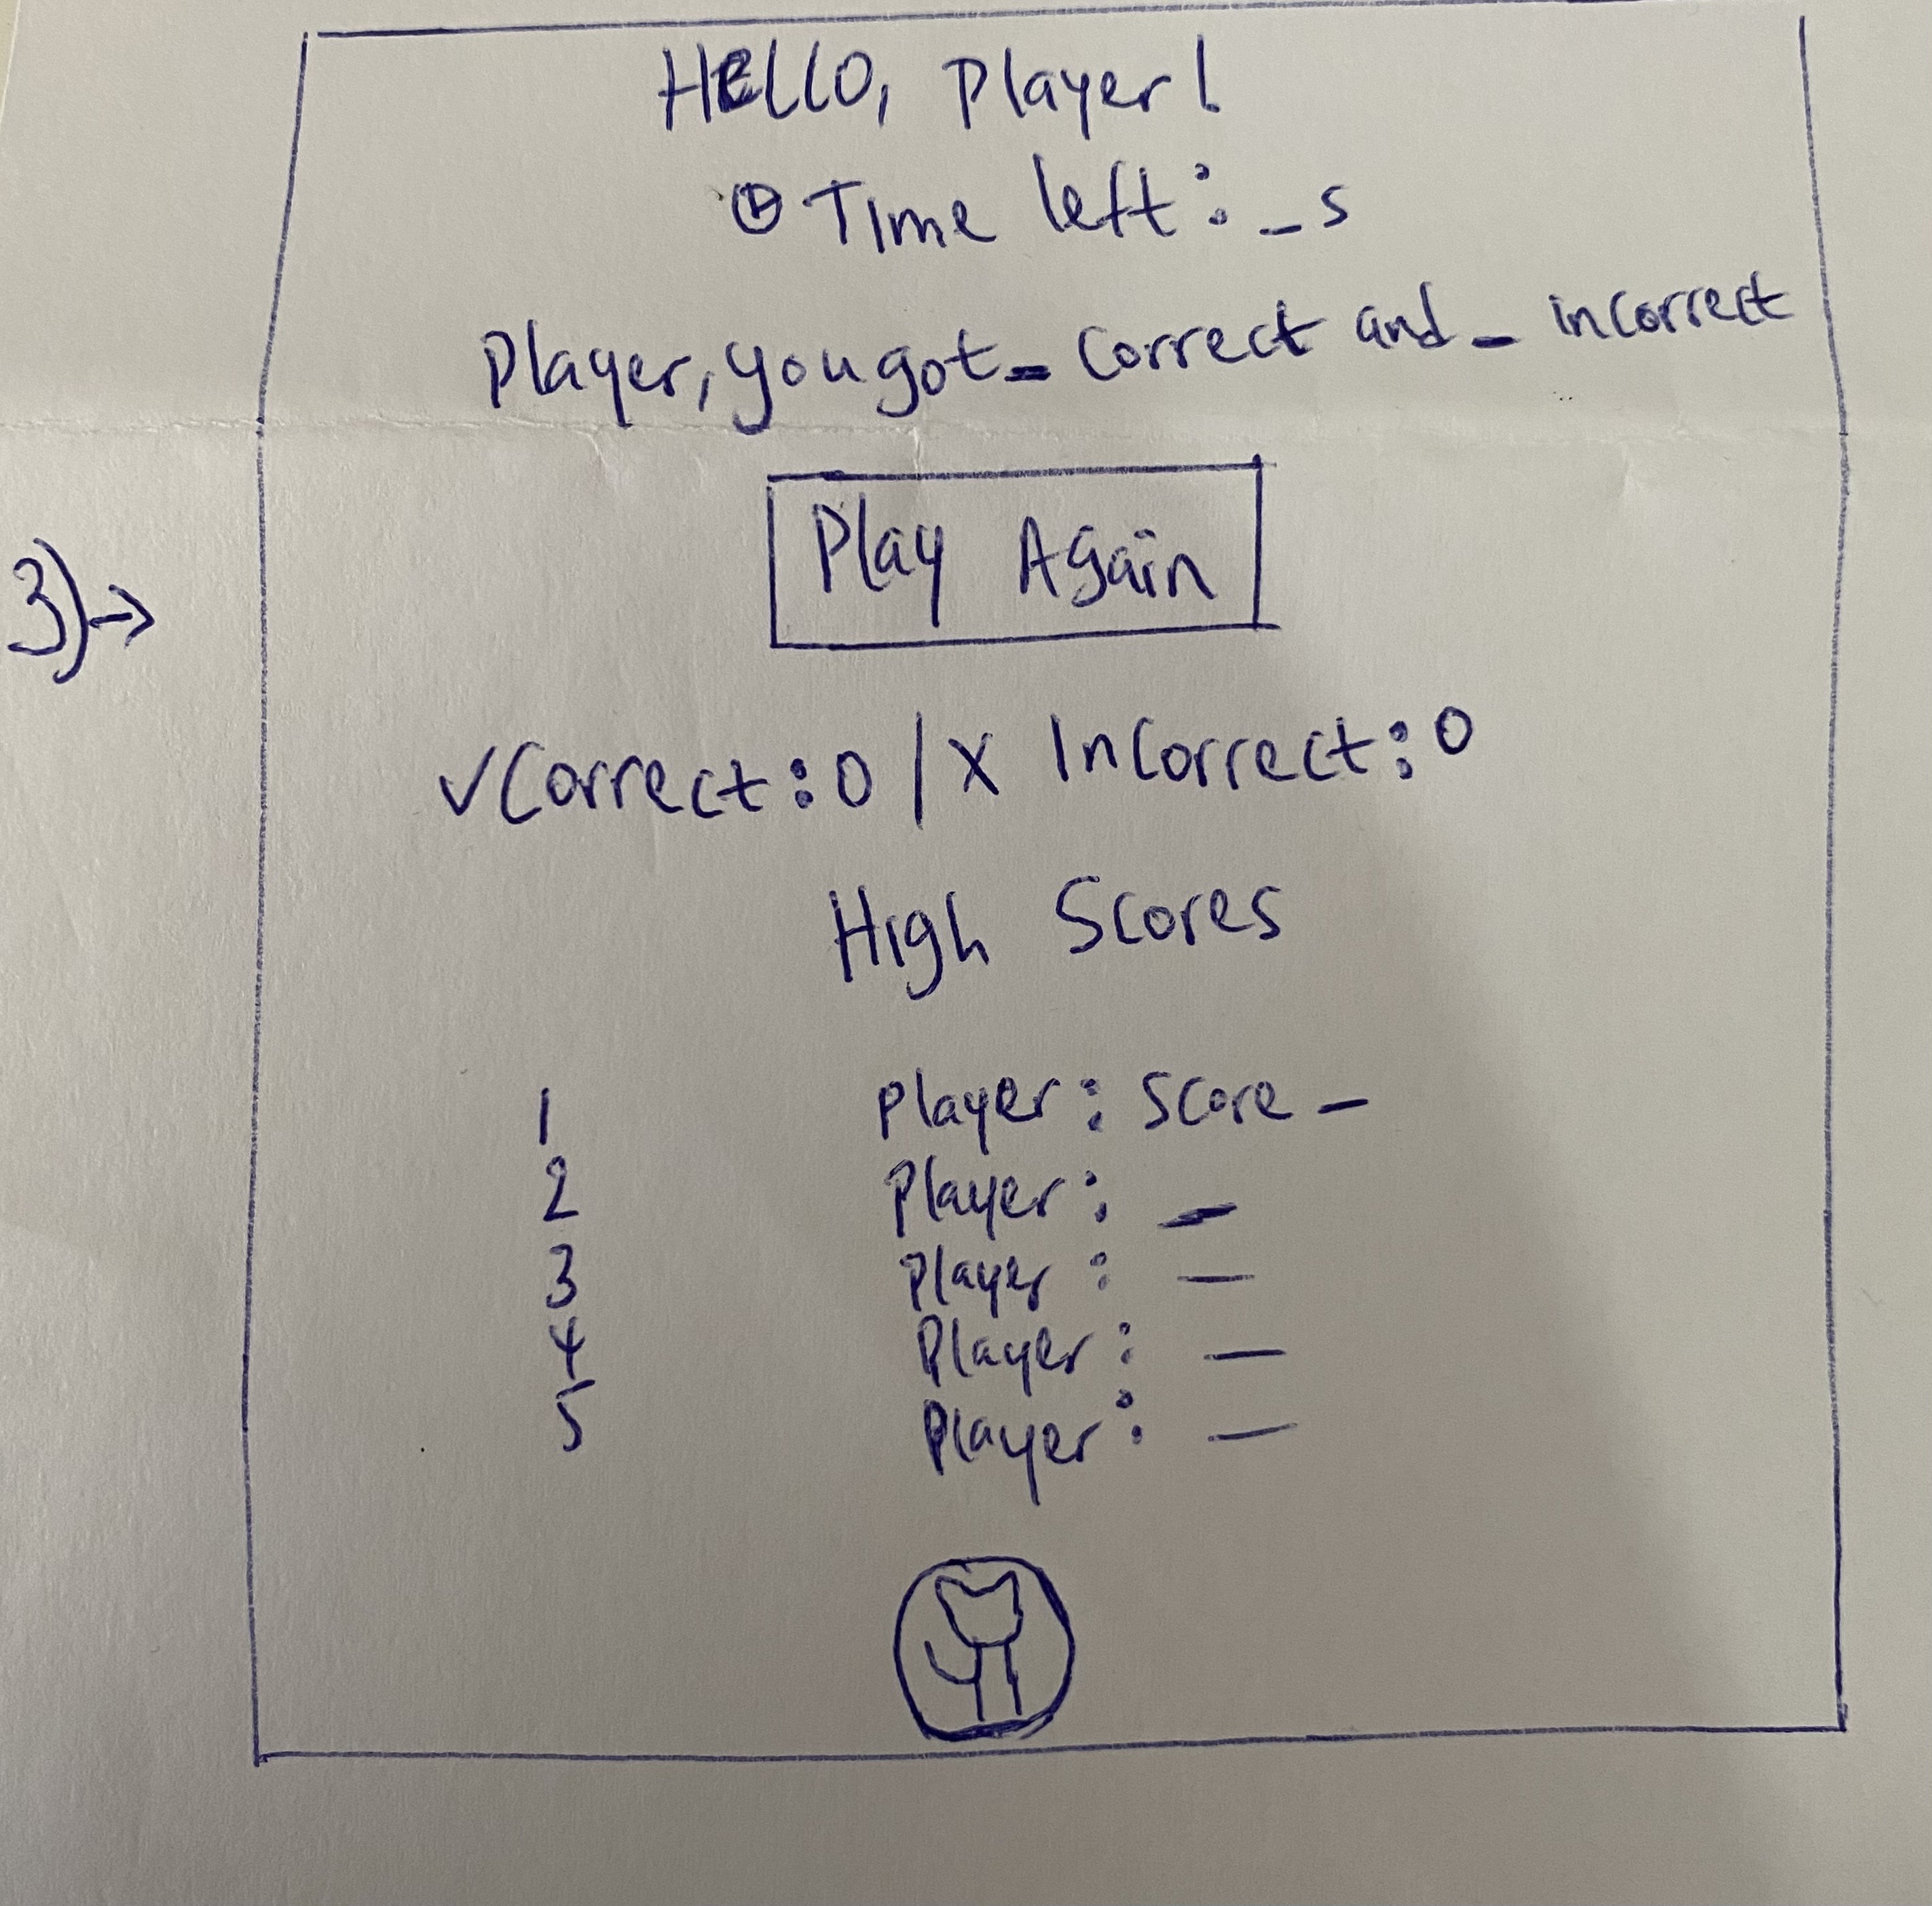 HELLO, Player!
Time left: _ s
Player, you got _ correct and _ incorrect
3)→
Play Again
✓Correct: 0 / X Incorrect: 0
High Scores
1 Player: Score _
2 Player: _
3 Player: _
4 Player: _
5 Player: _